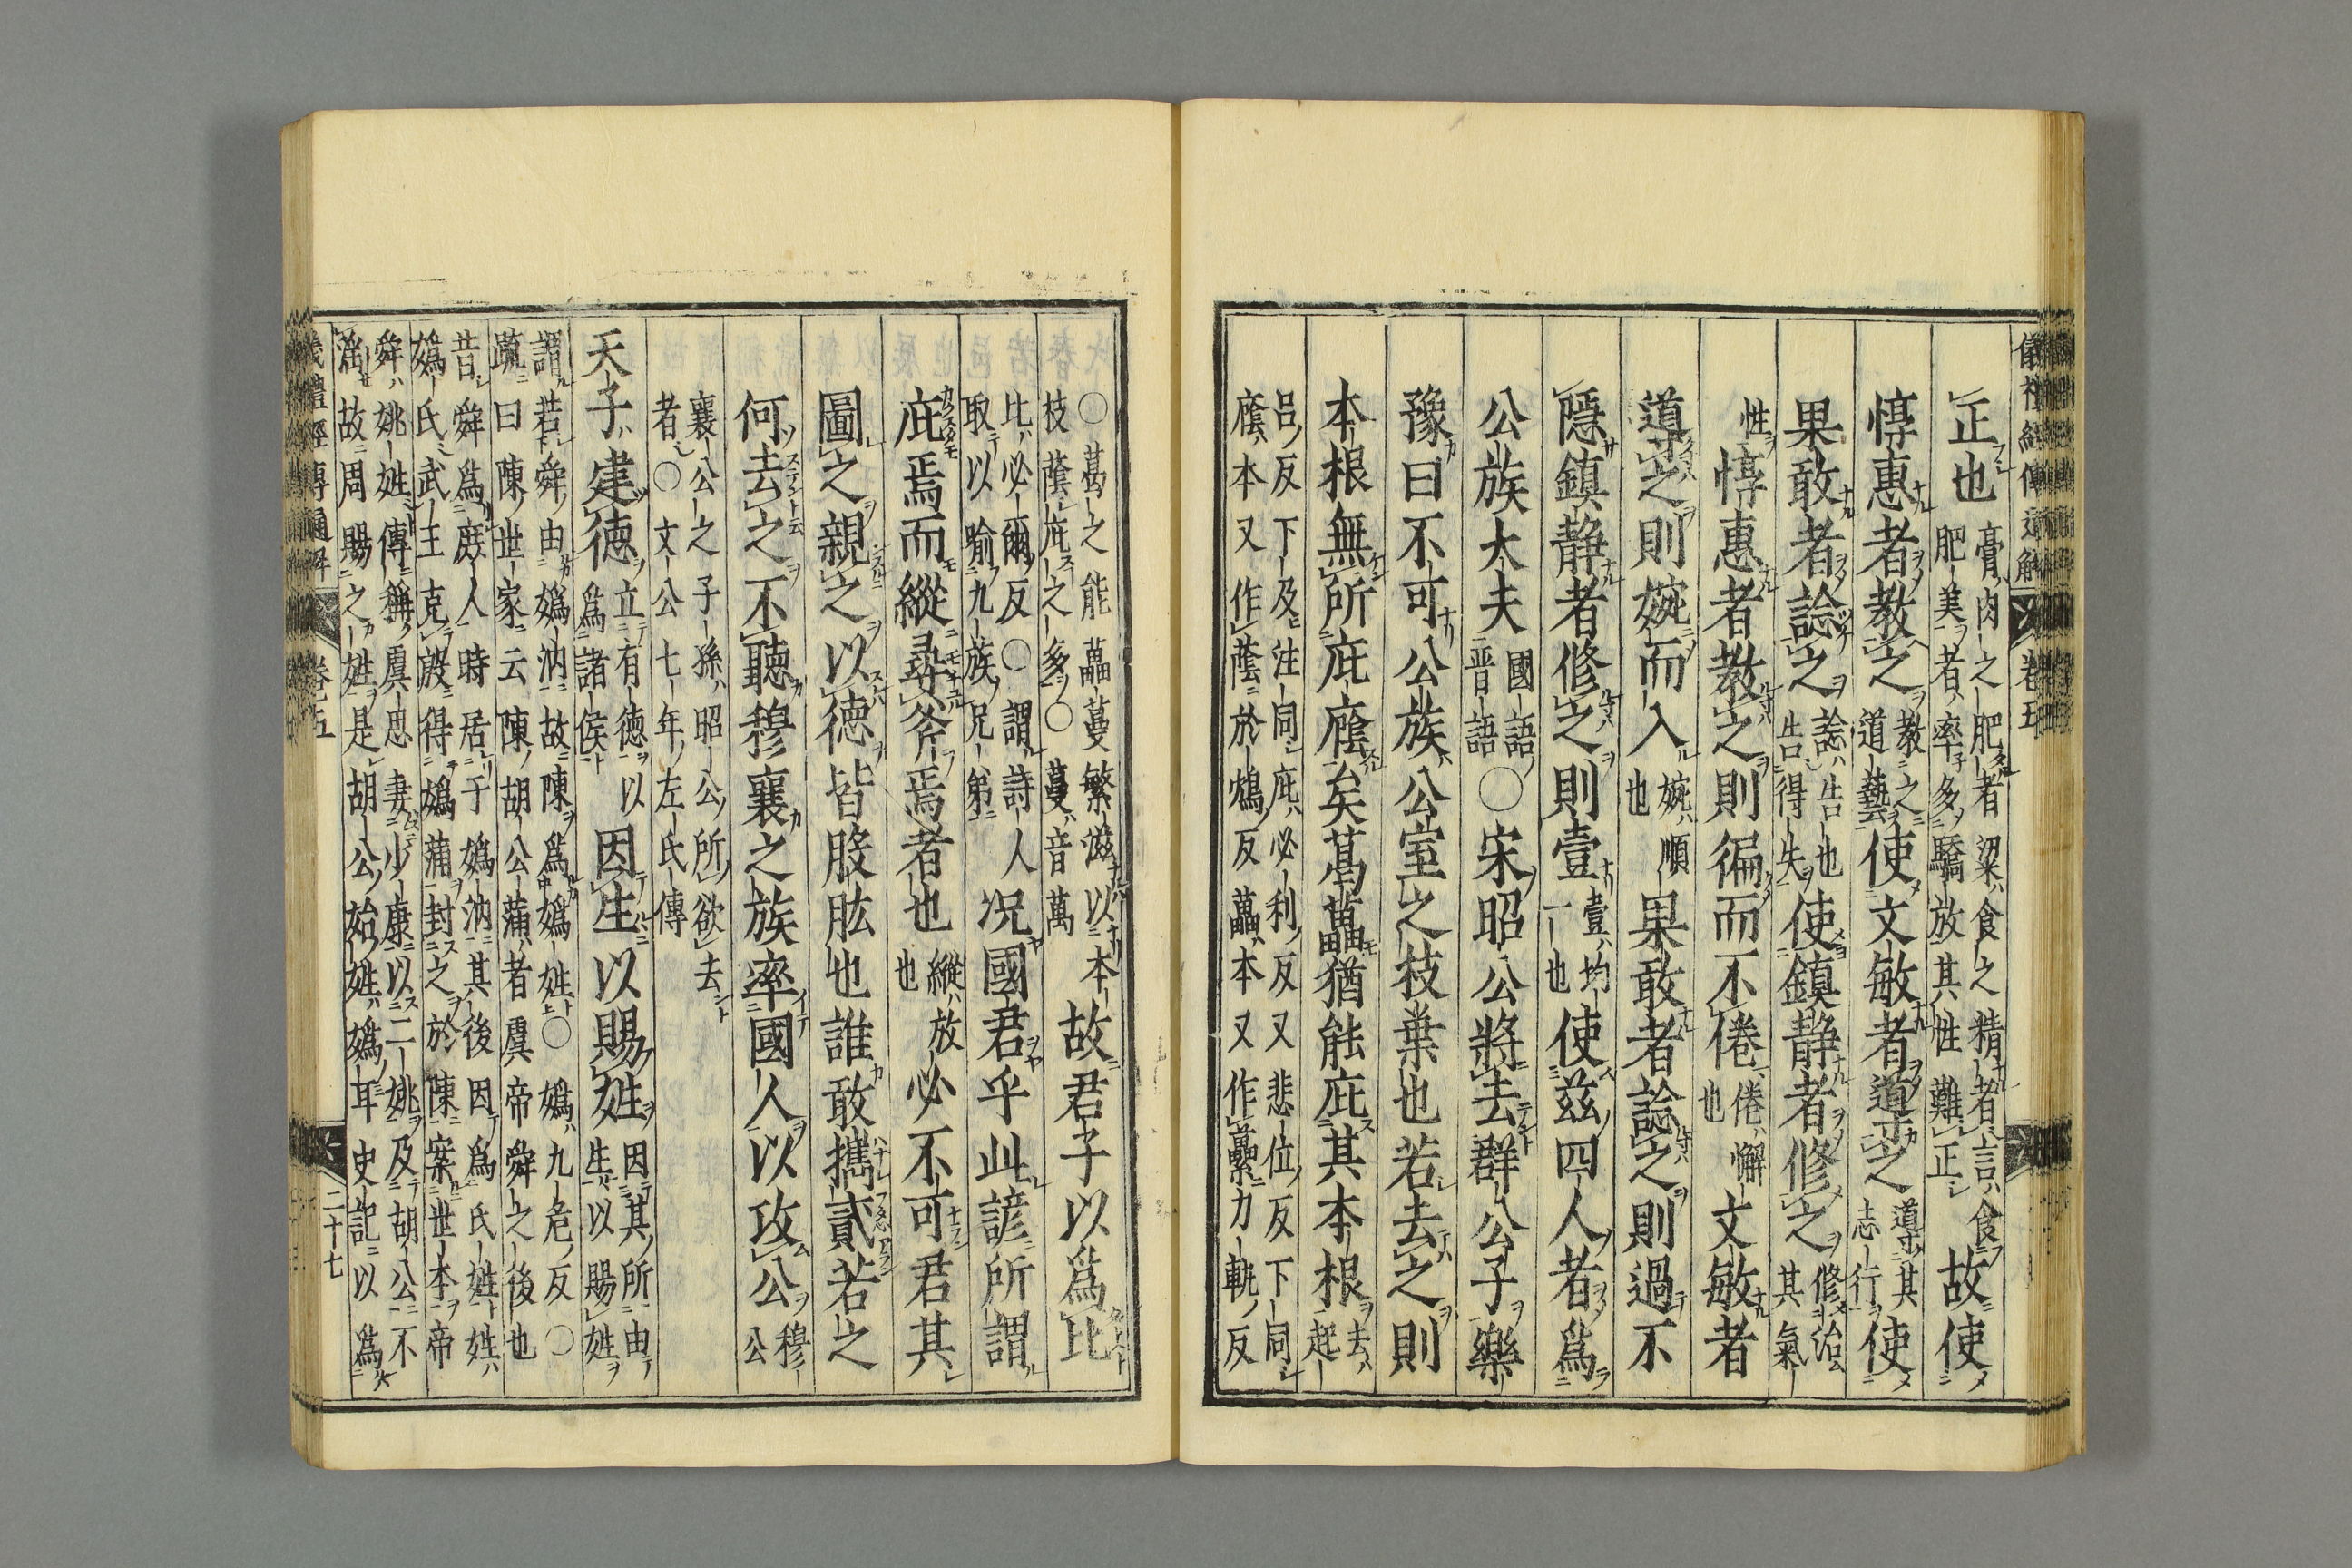 儀禮經傳通解 卷五
正也 膏肉之肥者 粱食之精者言食
肥美者率多驕放其性難正 故使
惇惠者教之 教之
道藝 使文敏者導之 導其
志行 使
果敢者諗之 諗告也
告得失 使鎮静者修之 修治
其氣
性 惇惠者教之則徧而不倦 倦懈
也 文敏者
導之則婉而入 婉順
也 果敢者諗之則過不
隱鎮静者修之則壹 壹均
一也 使茲四人者爲
公族大夫 國語
晋語 〇宋昭公將去群公子樂
豫曰不可公族公室之枝葉也若去之則
本根無所庇廕矣葛藟猶能庇其本根 去
起
呂反下及注同庇必利反又悲位反下同
廕本又作蔭於鴆反藟本又作虆力軌反
〇葛之能藟蔓繁滋以本
枝蔭庇之多〇蔓音萬 故君子以爲比
比必爾反〇謂詩人
取以喩九族兄弟 况國君乎此諺所謂
庇焉而縱尋斧焉者也 縱放
也 必不可君其
圖之親之以德皆股肱也誰敢攜貳若之
何去之不聽穆襄之族率國人以攻公 穆
公
襄公之子孫昭公所欲去
者〇文公七年左氏傳
天子建德 立有德以
爲諸侯 因生以賜姓 因其所由
生以賜姓
謂若舜由嬀汭故陳爲嬀姓〇嬀九危反〇
疏曰陳世家云陳胡公蒲者虞帝舜之後也
昔舜爲庶人時居于嬀汭其後因爲氏姓姓
嬀氏武王克殷得嬀蒲封之於陳案世本帝
舜姚姓傳稱虞思妻少康以二姚及胡公不
滛故周賜之姓是胡公始姓嬀耳史記以爲
儀禮經傳通解 卷五 二十七